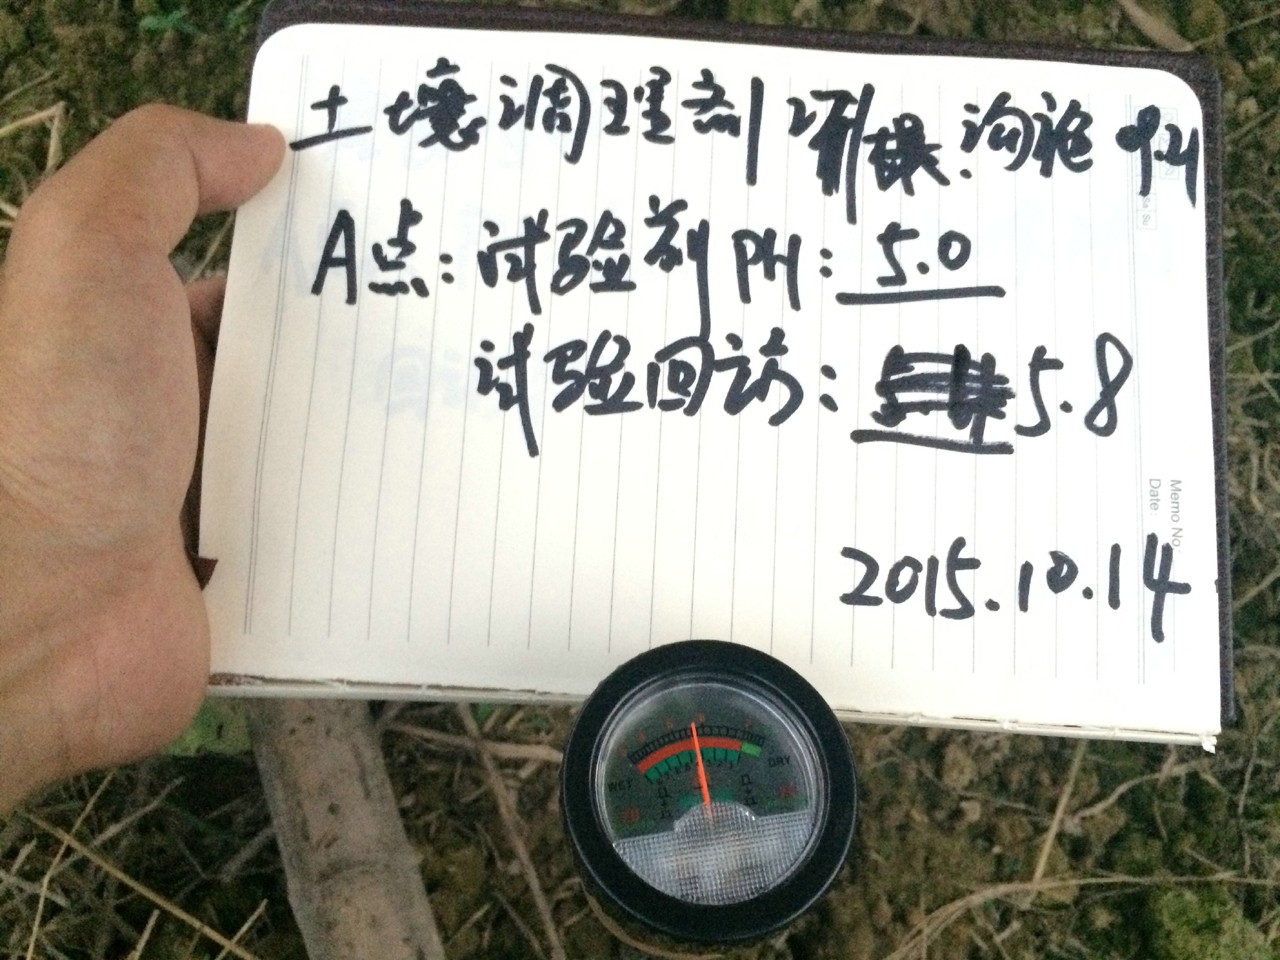 土壤调理剂 沟施
A点：试验前PH：5.0
试验回访：5.8
2015.10.14
Memo No.
Date
WET
DRY